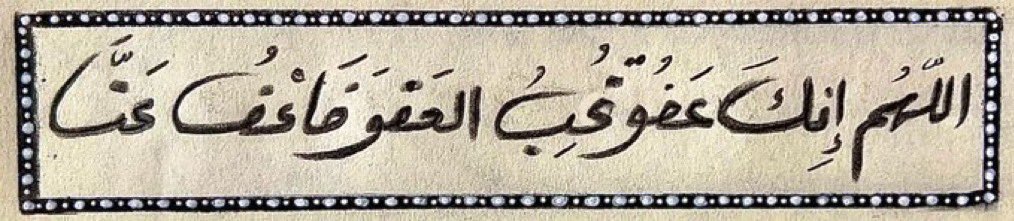 اللّهُم إِنكَ عَفُوٌّ تُحِبُ العَفْوَ فَاعْفُ عَنَّا